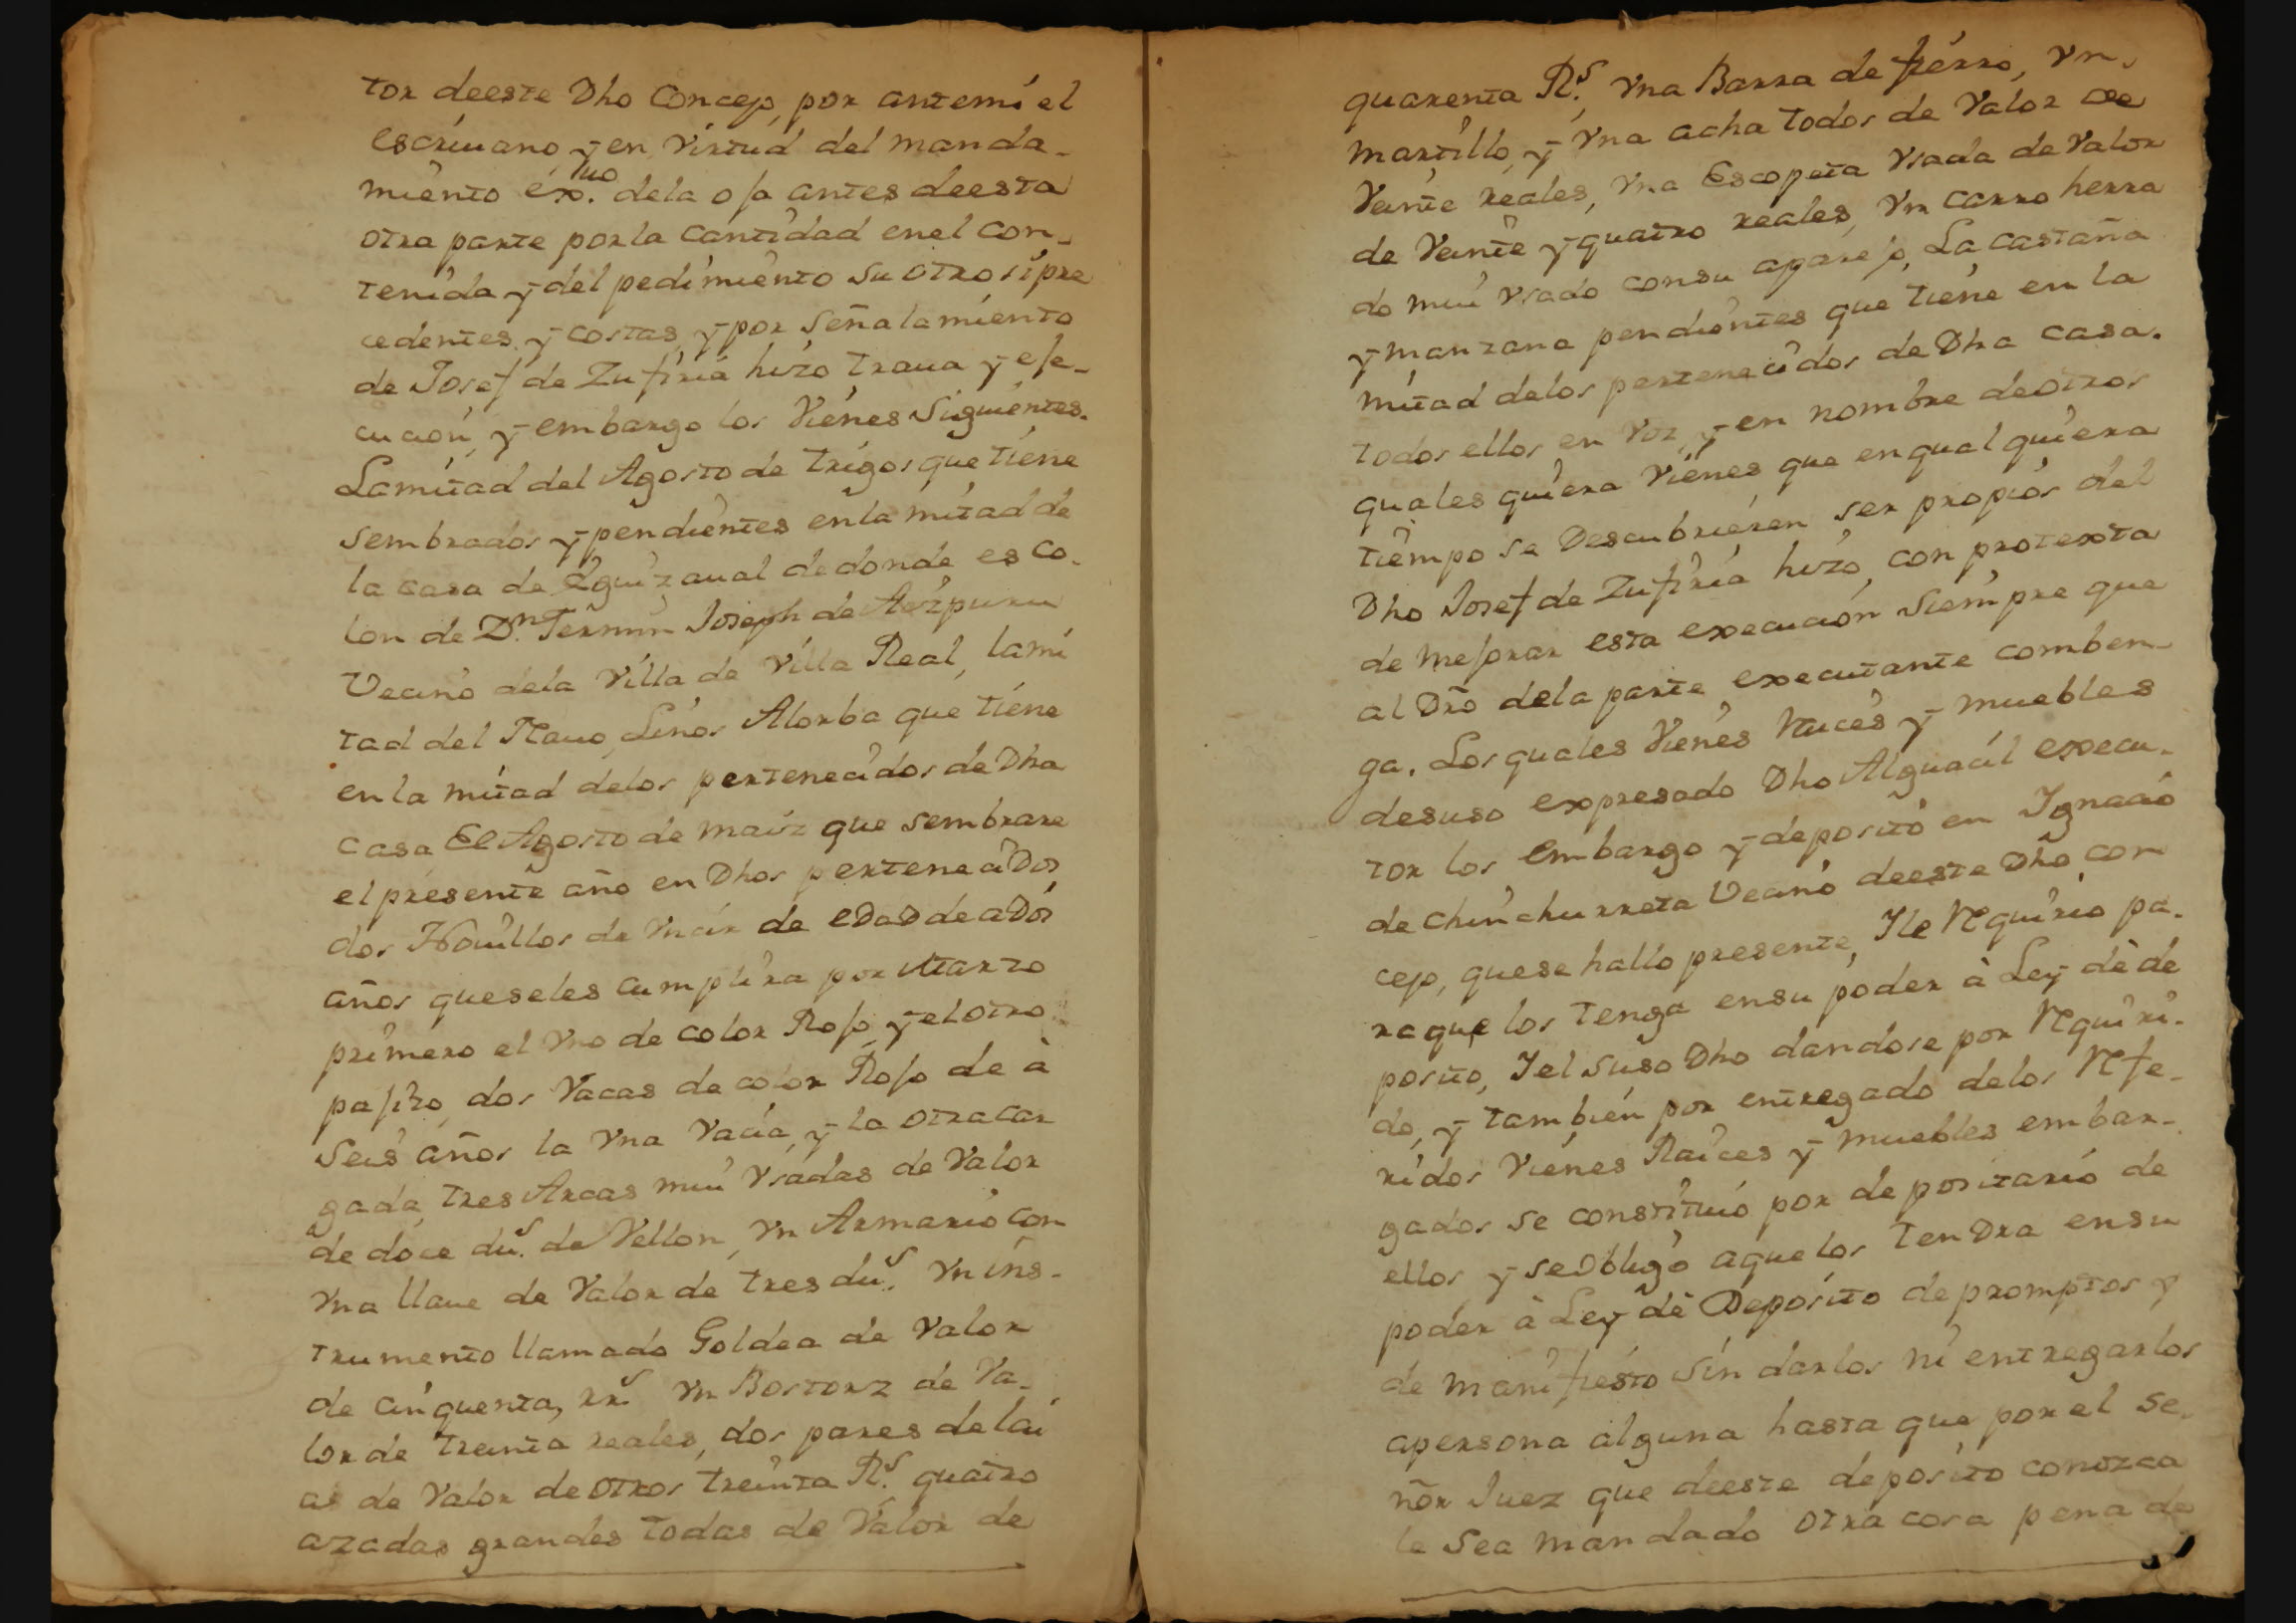 tor deeste Dho Concejo, por antemi el
escriuano y en virtud del manda-
miento ex.uo dela oja antes deesta
otra parte por la Cantidad enel con-
tenida y del pedimiento su otro si pre
cedentes, y costas, y por señalamiento
de Josef de Zufiria hizo traua y eje-
cucion, y embargo los Vienes Siguientes.
La mitad del Agosto de trigos que tiene
sembrados y pendientes en la mitad de
la casa de Eguizaual dedonde es Co-
lon de Dn. Fermin Joseph de Aizpuru
Vecino dela Villa de Villa Real, la mi
tad del Nauo, Linos Alorba que tiene
en la mitad delos pertenecidos de Dha
Casa El Agosto de maiz que sembrare
el presente año en Dhos pertenecidos
dos Nouillos de Vncir de edad de a dos
años queseles cumplira por Marzo
primero el Vno de color Rojo, y el otro
pajizo, dos Vacas de color Rojo de à
Seis años la Vna Vacia, y la otra Car
gada, tres Arcas mui Vsadas de Valor
de doce dus. de Vellon, Vn Armario con
Vna llaue de Valor de tres dus. Vn ins-
trumento llamado Goldea de Valor
de cinquenta, rrs. Vn Bostorz de Va-
lor de treinta reales, dos pares de lai
as de Valor de otros treinta Rs. quatro
azadas grandes todas de Valor de
quarenta Rs. Vna Barra de fierro, Vn
martillo, y Vna acha todos de Valor de
Veinte reales, Vna Escopeta Vsada de Valor
de Veinte y quatro reales, Vn Carro herra
do mui Vsado consu aparejo, La Castaña
y manzana pendientes que tiene en la
mitad delos pertenecidos de Dha Casa.
todos ellos en Voz, y en nombre deotros
quales quiera Vienes que en qual quiera
tiempo se Descubrieren ser propios del
Dho Josef de Zufiria hizo, con protexta
de mejorar esta execucion Siempre que
al Dro dela parte executante comben-
ga. Los quales Vienes Raices y muebles
desuso expresado Dho Alguacil execu-
tor los embargo y deposito en Ignacio
de Chinchurreta Vecino deeste Dho Con
cejo, quese hallo presente, Ile Requirio pa-
raque los tenga ensu poder à Ley de de
posito, Iel suso Dho dandose por Requiri-
do, y tambien por entregado delos Refe-
ridos Vienes Raices y muebles embar-
gados se constituio por depositario de
ellos, y seobligo aquelos tendra ensu
poder à Ley de Deposito de promptos y
de manifiesto sin darlos ni entregarlos
apersona alguna hasta que por el Se-
ñor Juez que deeste deposito conozca
le Sea mandado otra cosa pena de